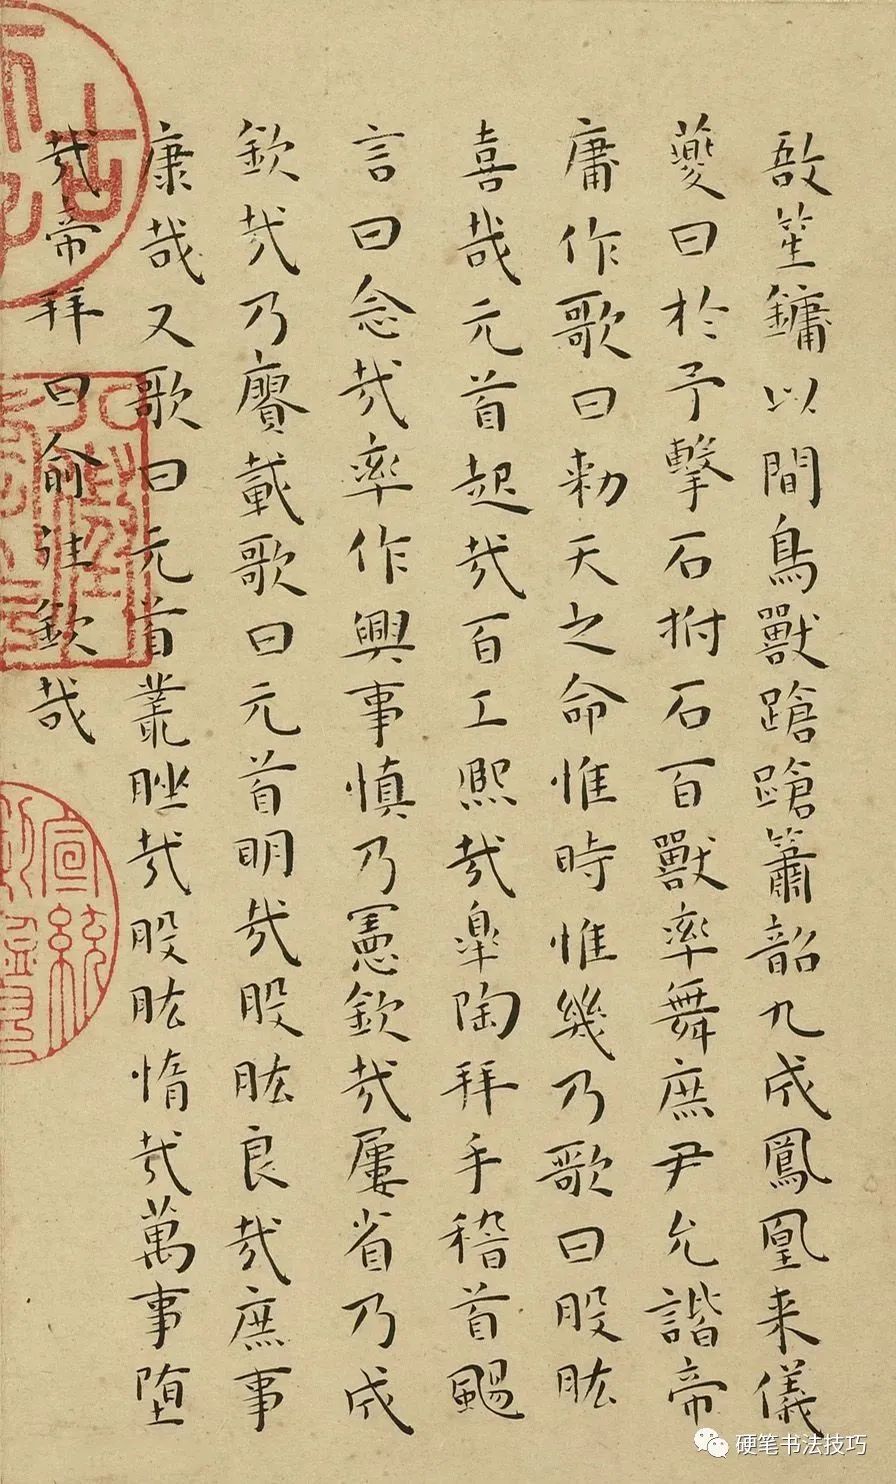 敔笙鏞以間鳥獸蹌蹌簫韶九成鳳凰来儀
夔曰於予擊石拊石百獸率舞庶尹允諧帝
庸作歌曰勑天之命惟時惟幾乃歌曰股肱
喜哉元首起哉百工熙哉皋陶拜手稽首颺
言曰念哉率作興事慎乃憲欽哉屢省乃成
欽哉乃賡載歌曰元首明哉股肱良哉庶事
康哉又歌曰元首叢脞哉股肱惰哉萬事堕
哉帝拜曰俞往欽哉
古
宣統
硬笔书法技巧